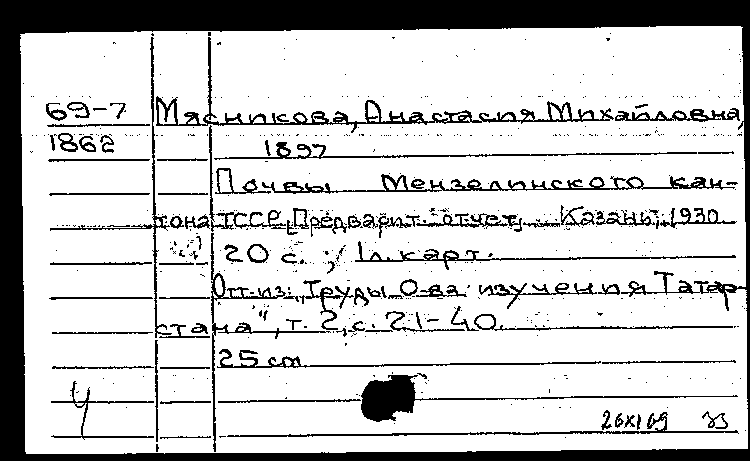 69-7 Мясникова, Анастасия Михайловна,
1862 1897
Почвы Мензелинского кан-
тона ТССР. [Предварит. отчет]. Казань, 1930
20 с.; 1 л. карт.
Отт. из: "Труды О-ва изучения Татар-
стана", т. 2, с. 21-40.
25 cm
Ч
26XI69